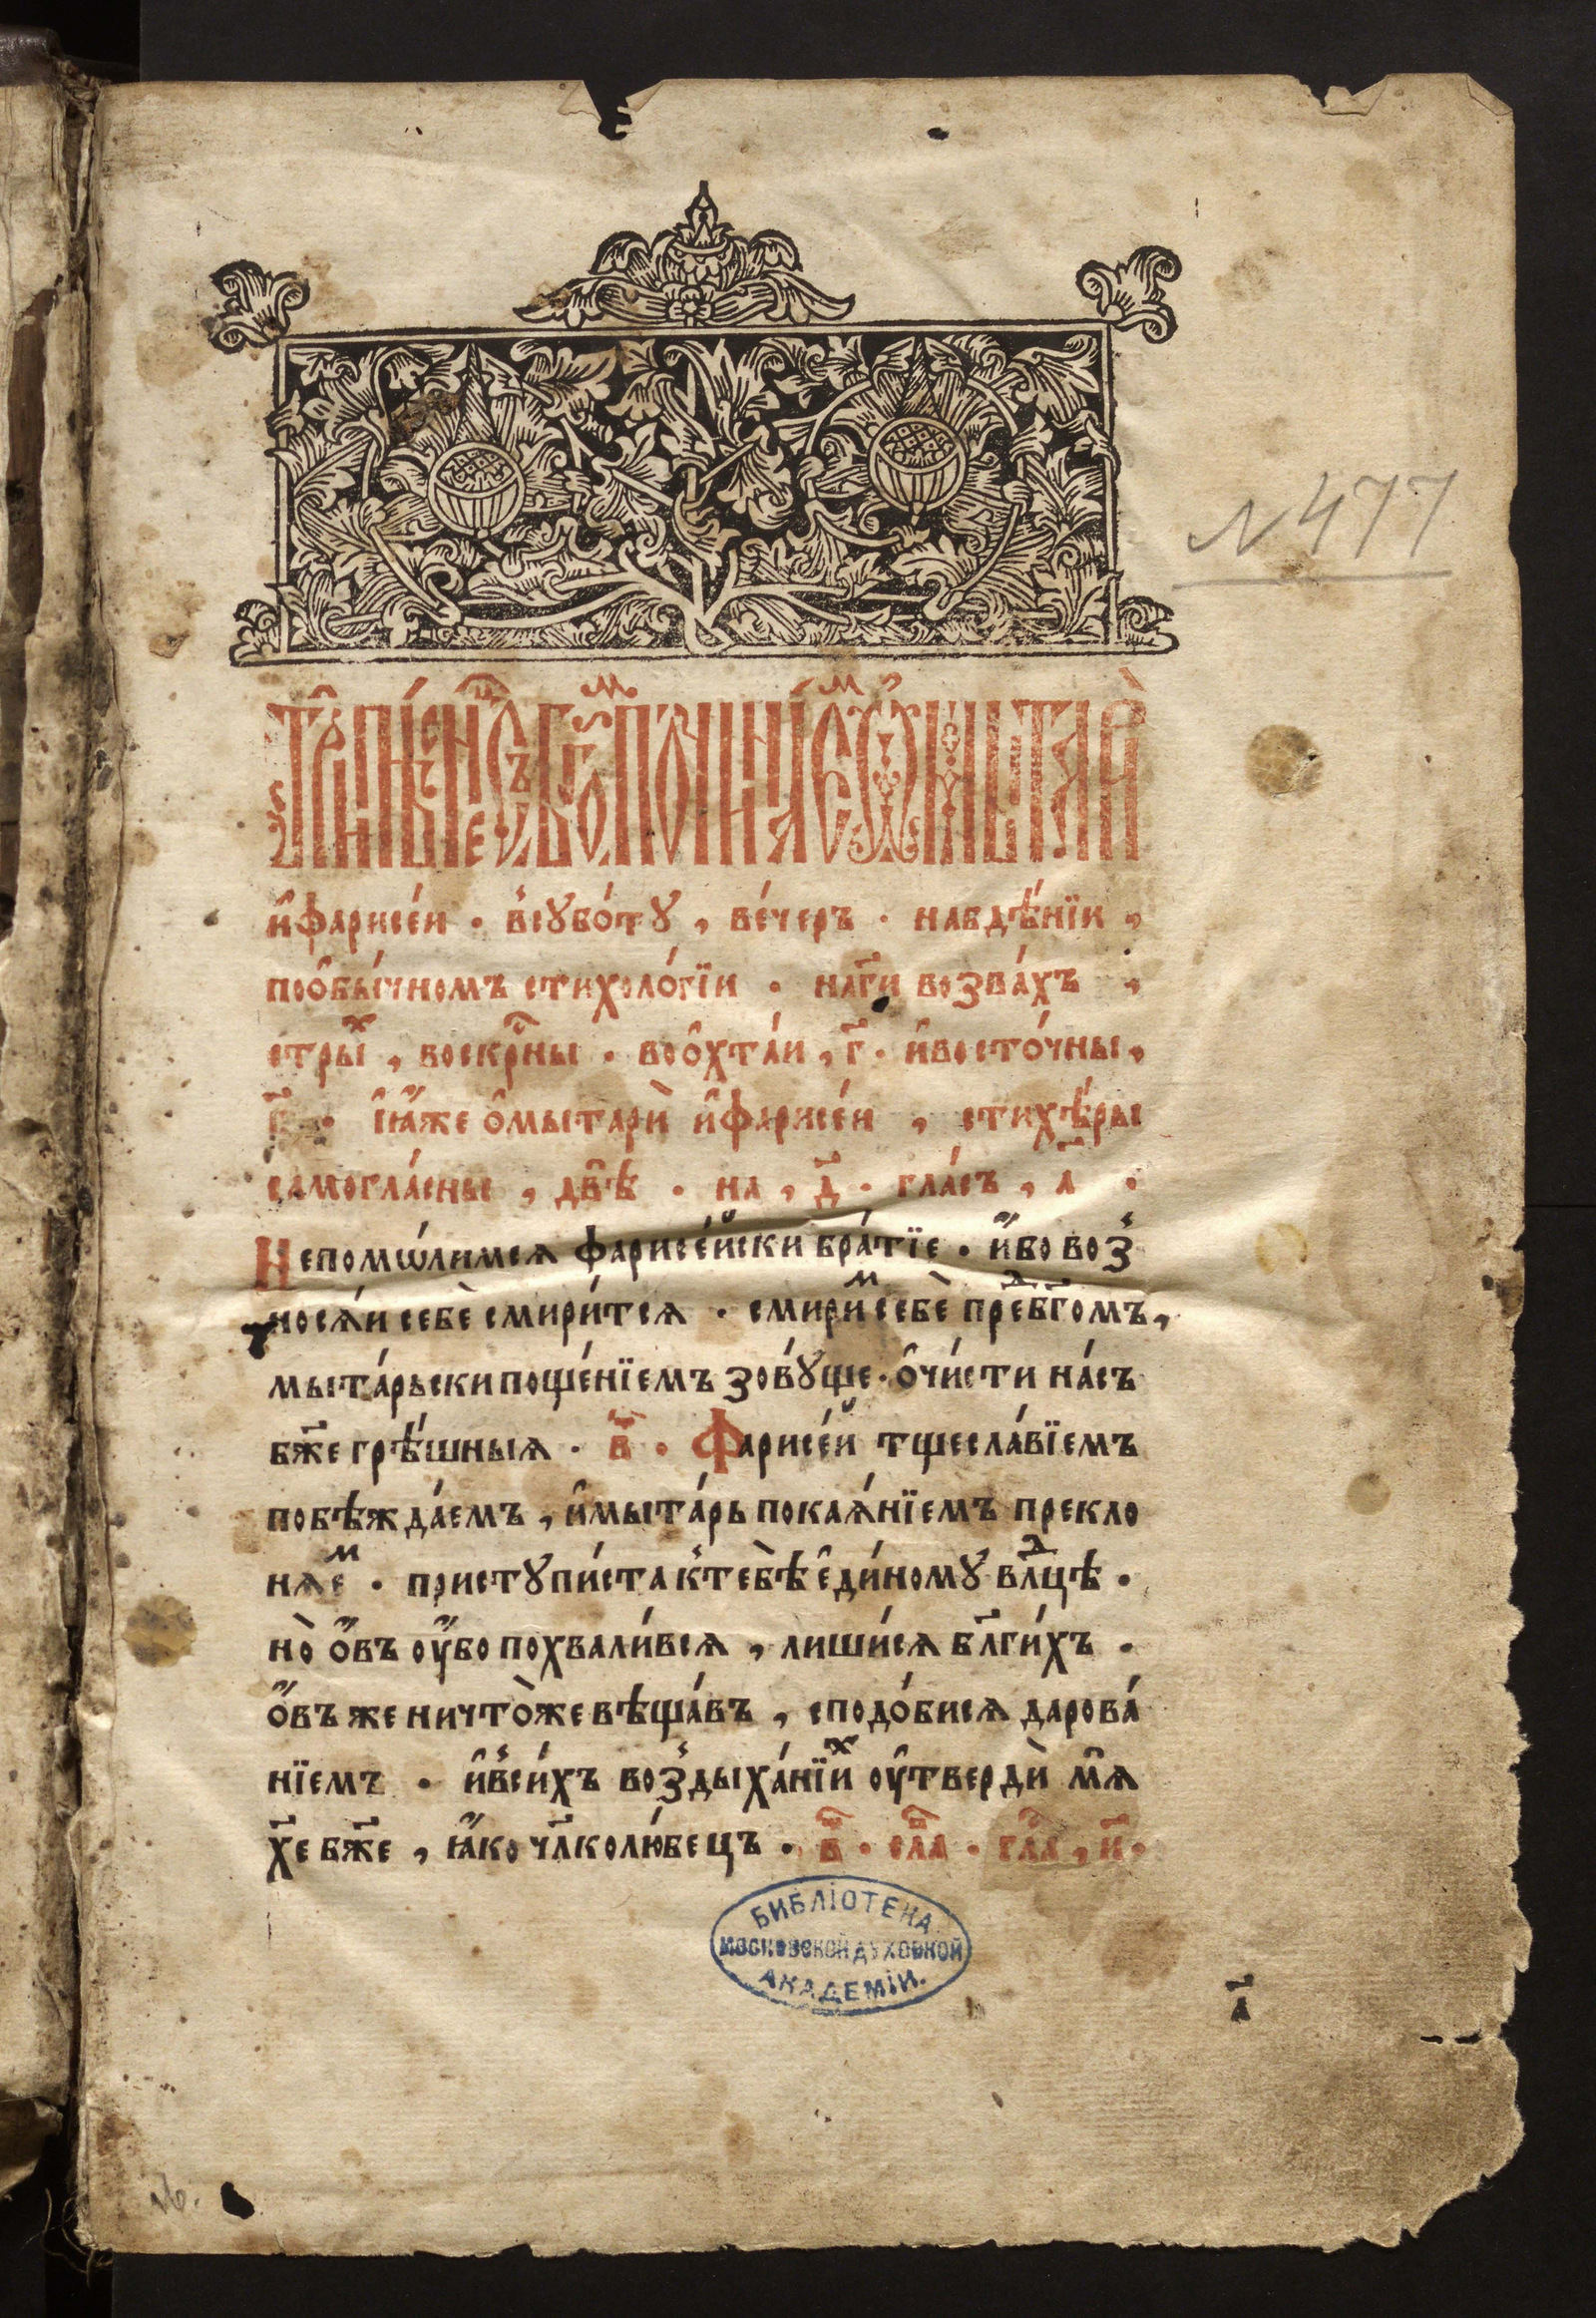 N 477
и҆фарисе́и . в̾сꙋбо́тꙋ , ве́черъ . навдѣ́нїи ,
поѡ҆бы́чномъ стихоло́гїи . наг҃и возва́хъ .
стры̑ѧ , воскр҇ны . воѻ҆хта́и , г҃ . и҆восто́чны ,
г҃ . и҆ꙗ҆́же ѡ҆мытарѝ и҆фарисе́и , стихѣ́ры
самогла́сны , двѣ̀ . на , д҃ . гла́съ , а҃ .
Непомѡ́лимсѧ фарисе́йски бра́тїе . и҆́бо воз̾
носѧ́и себѐ смири́тсѧ . смири́м себѐ пред̾бг҃омъ ,
мыта́рьски поще́нїемъ зовꙋ́ще . ѡ҆чи́сти на́съ
бж҃е грѣ́шныѧ . в҃ . Фарисе́й тщесла́вїемъ
побѣжда́емъ , и҆мыта́рь покаѧ́нїемъ прекло
нѧ́ем . пристꙋпи́ста к̾тебѣ̀ є҆ди́номꙋ влⷣцѣ .
но̀ ѻ҆́въ оу҆́бо похвали́всѧ , лиши́сѧ бл҃ги́хъ .
ѻ҆́въ же ничто̀же вѣща́въ , сподо́бисѧ дарова́
нїемъ . и҆в̾си́хъ воз̾дыха́нїих оу҆твердѝ мѧ̀
хе҃ бж҃е , ꙗ҆́ко чл҃колю́бецъ . в҃ . сла . гла , и҃ .
БИБЛІОТЕКА
МОСКОВСКОЙ ДУХОВНОЙ
АКАДЕМІИ.
а҃